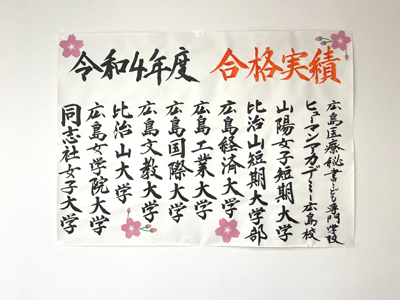 令和4年度 合格実績
広島医療秘書こども専門学校
ヒューマンアカデミー広島校
山陽女子短期大学
比治山短期大学部
広島経済大学
広島工業大学
広島国際大学
広島文教大学
比治山大学
広島女学院大学
同志社女子大学